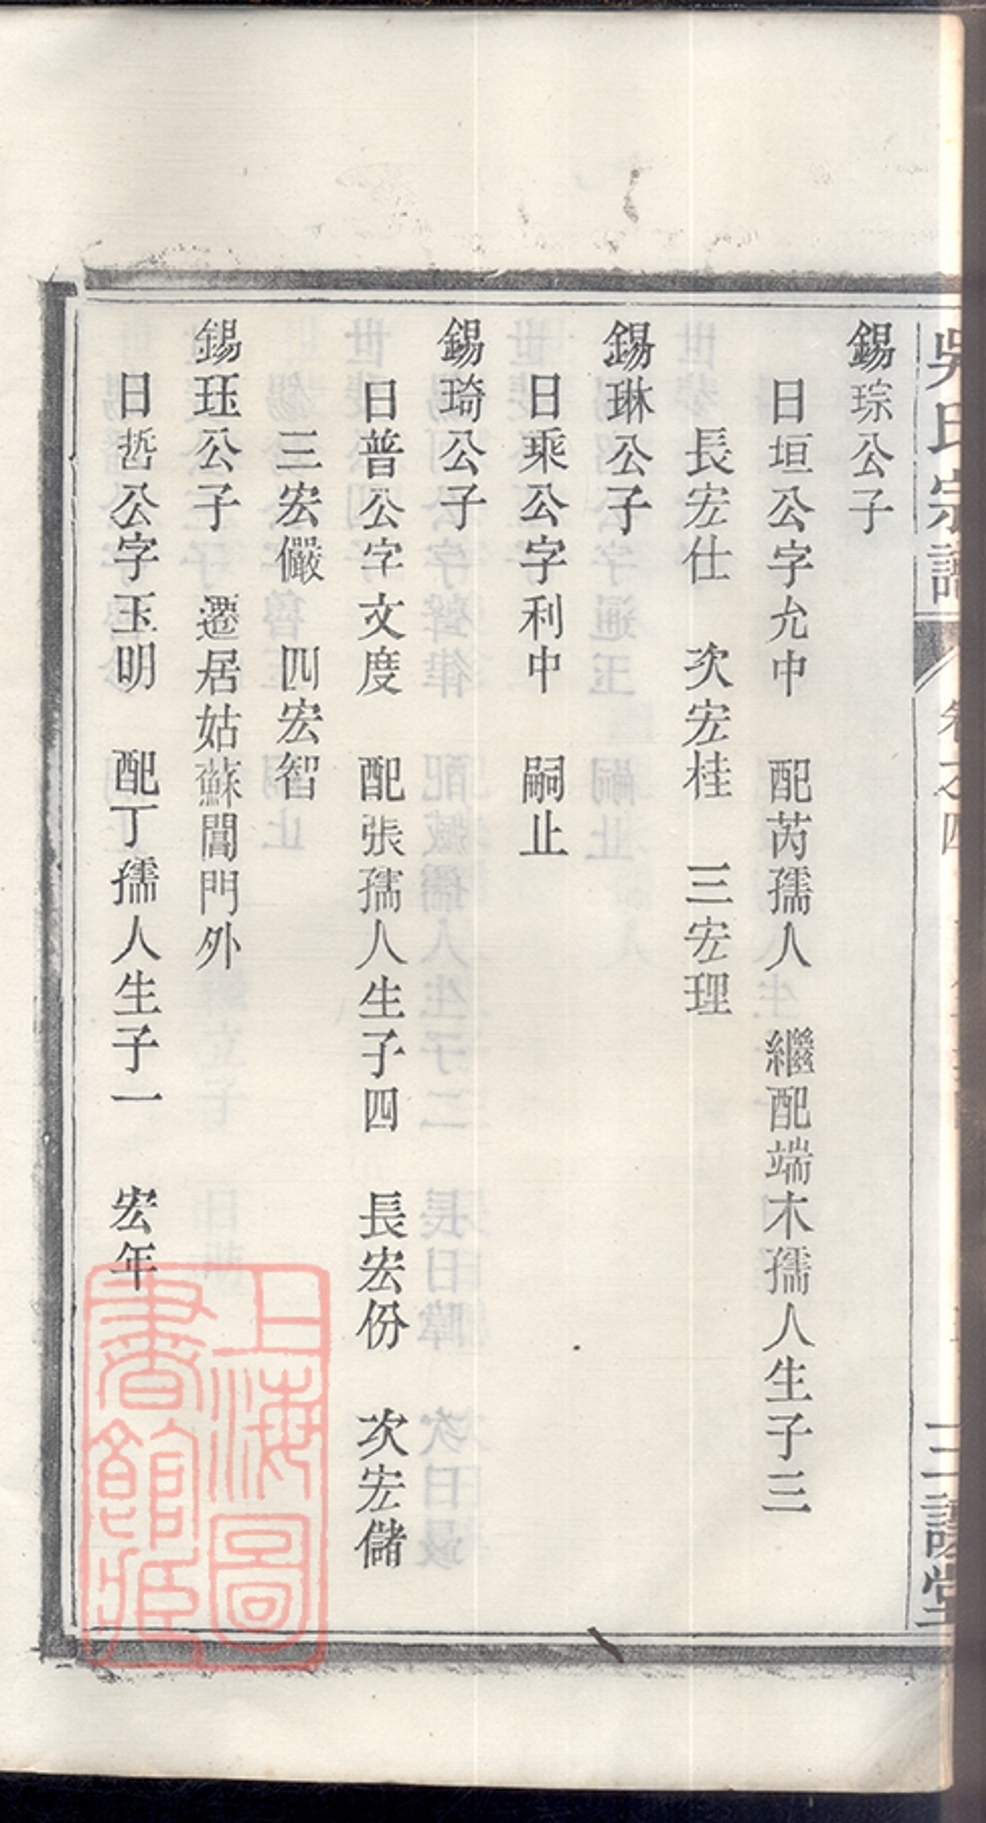 吳氏宗譜 卷之四 三讓堂
錫琮公子
日垣公字允中 配芮孺人 繼配端木孺人生子三
長宏仕 次宏桂 三宏理
錫琳公子
日乘公字利中 嗣止
錫琦公子
日普公字文度 配張孺人生子四 長宏份 次宏儲
三宏儼 四宏智
錫珏公子 遷居姑蘇閶門外
日哲公字玉明 配丁孺人生子一 宏年
上海圖
書館藏